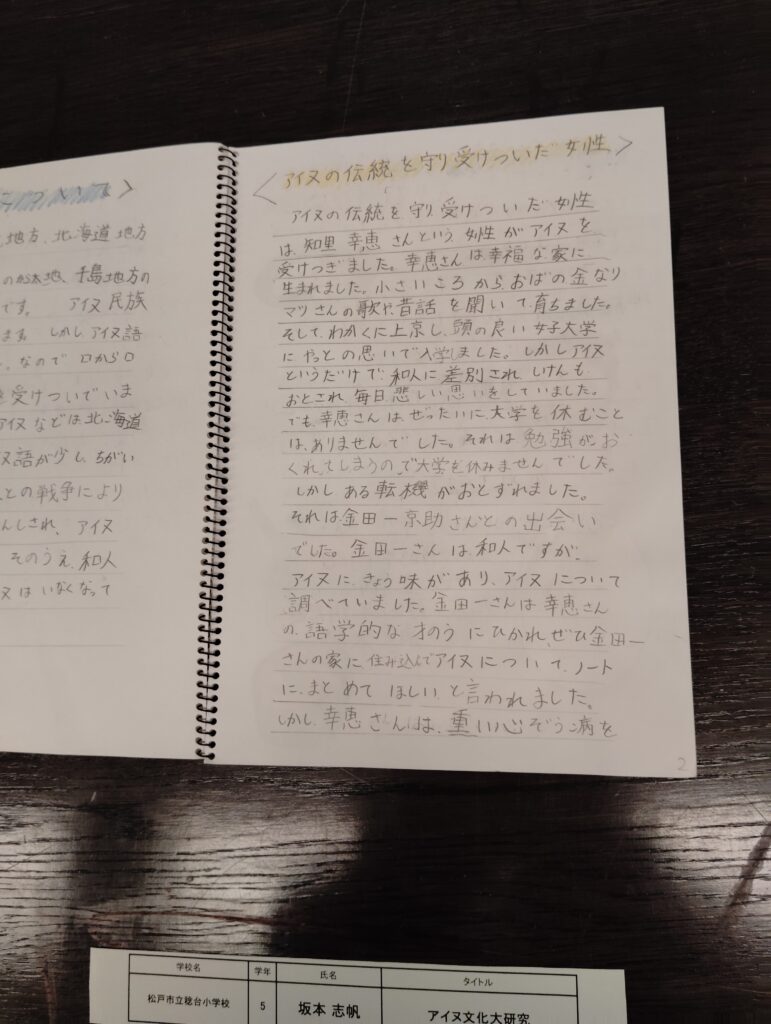 ついて>
地方、北海道地方
のカラ太地、千島地方の
です。 アイヌ民族
ます。しかし、アイヌ語
、なので口から口
を受けついでいま
アイヌなどは北海道
ヌ語が少し、ちがい
人との戦争により
んしされ、アイヌ
そのうえ、和人
ヌはいなくなって
<アイヌの伝統を守り受けついだ女性>
アイヌの伝統を守り、受けついだ女性
は、知里幸恵さんという女性がアイヌを
受けつぎました。幸恵さんは幸福な家に
生まれました。小さいころから、おばの金なり
マツさんの歌や、昔話を聞いて、育ちました。
そして、わかくに上京し、頭の良い女子大学
にやっとの思いで入学しました。しかしアイヌ
というだけで和人に差別され、しけんも
おとされ、毎日悲しい思いをしていました。
でも、幸恵さんは、ぜったいに、大学を休むこと
は、ありませんでした。それは勉強がお
くれてしまうので大学を休みませんでした。
しかしある転機がおとずれました。
それは金田一京助さんとの出会い
でした。金田一さんは和人ですが、
アイヌに、きょう味があり、アイヌについて
調べていました。金田一さんは幸恵さん
の、語学的な才のうにひかれ、ぜひ金田一
さんの家に住み込んでアイヌについて、ノート
に、まとめてほしいと言われました。
しかし、幸恵さんは、重い心ぞう病を
2
学校名 学年 氏名 タイトル
松戸市立稔台小学校 5 坂本 志帆 アイヌ文化大研究